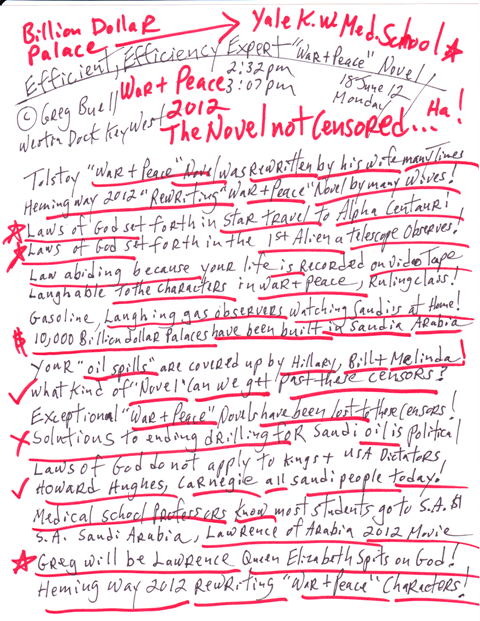 Billion Dollar Palace → Yale K.W. Med. School ★
Efficient, Efficiency Expert "War + Peace" Novel!
War + Peace 2:32pm 3:07pm 18 June 12 Monday
© Greg Buell 2012 Ha!
Westin Dock Key West The Novel not Censored...
Tolstoy "War + Peace" Novel was rewritten by his wife many Times
Hemingway 2012 "Rewriting" "War + Peace" Novel by many wives!
★ Laws of God set forth in Star travel to Alpha Centauri
★ Laws of God set forth in the 1st Alien a telescope Observes!
Law abiding because your life is recorded on video Tape
Laughable to the characters in War + Peace, Ruling class!
Gasoline, Laughing gas observers watching Saudis at Home!
$ 10,000 Billion dollar Palaces have been built in Saudia Arabia
Your "oil spills" are covered up by Hillary, Bill + Melinda!
✓ what kind of "Novel" can we get past these censors?
Exceptional "War + Peace" Novels have been lost to these Censors!
x Solutions to ending drilling for Saudi oil is Political
Laws of God do not apply to kings + USA Dictators
✓ Howard Hughes, Carnegie all saudi people today!
Medical School Professors know most students go to S.A. $1
S.A. Saudi Arabia, Lawrence of Arabia 2012 Movie
★ Greg will be Lawrence Queen Elizabeth Spits on God!
Heming Way 2012 rewriting "War + Peace" Characters!